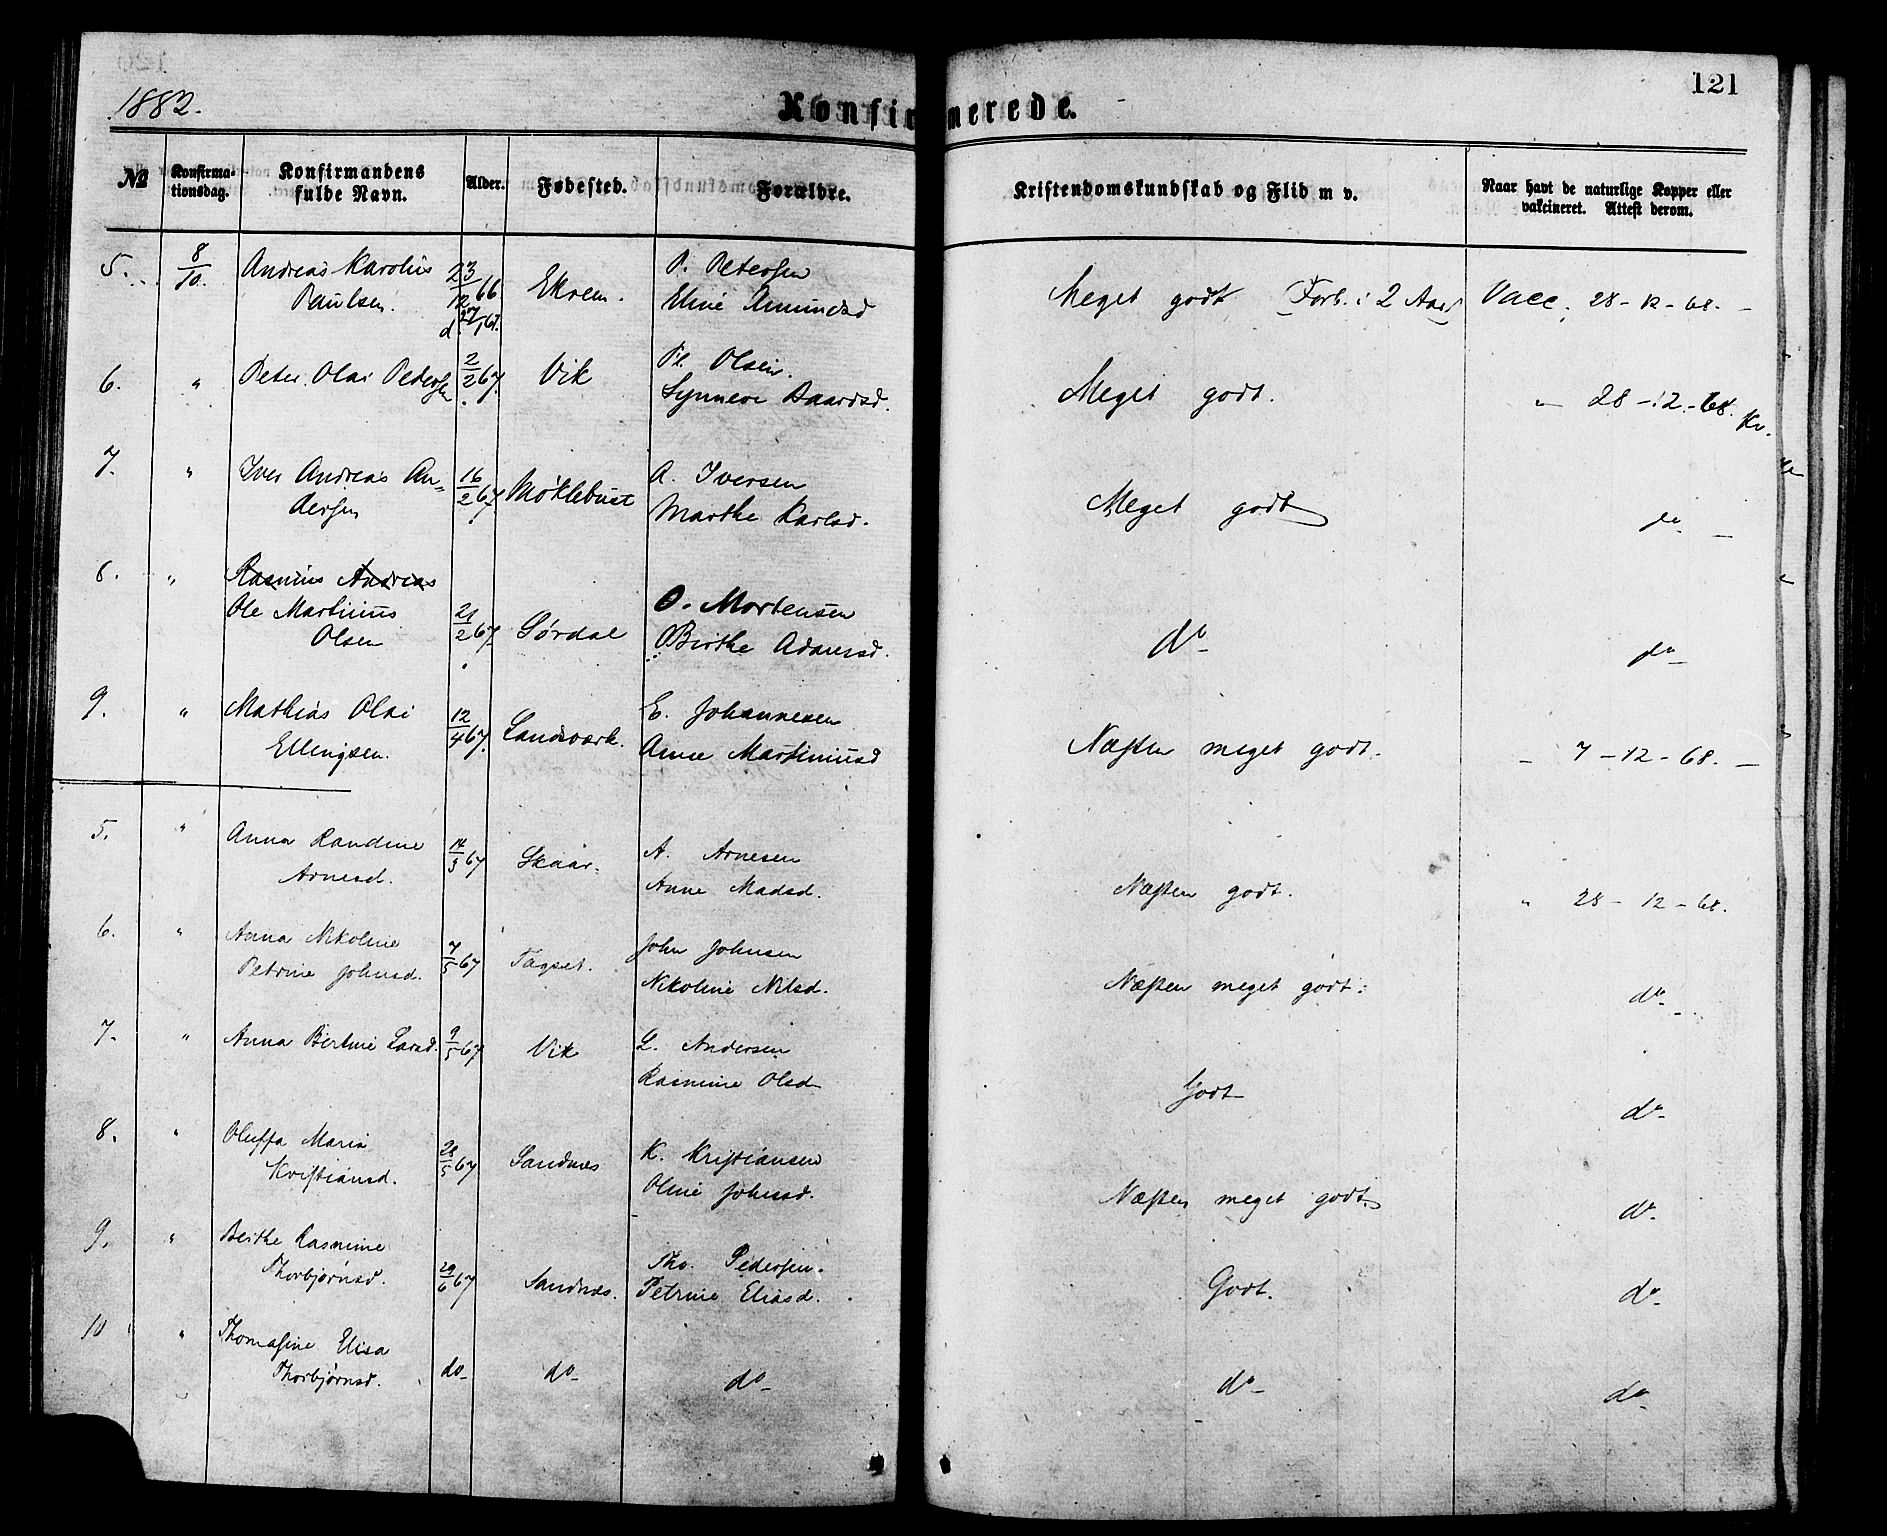 1882.
Konfirmerede.
121
№
Konfirma-
tionsdag.
Konfirmandens
fulde Navn.
Alder.
Fødested.
Forældre.
Kristendomskundskab og Flid m v.
Naar havt de naturlige Kopper eller
vakcineret. Attest derom.
5. 8/10. Andreas Karolus 23/12 66 Ekrem. P. Petersen
Paulsen. d. 27/1 67. Eline Amundsd Meget godt (Forb. i 2 Aar) Vacc. 28-12-68. -
6. " Peter Olai Pedersen 2/2 67. Vik P. Olsen.
Synneve Baardsd. Meget godt. " 28-12-68. Kv.
7. " Iver Andreas An- 16/2 67 Møklebust A. Iversen
dersen Marthe Karlsd. Meget godt do -
8. " Rasmus Andreas
Ole Martinus 21/2 67. Sørdal O. Mortensen
Olsen Birthe Adamsd. do - do -
9. " Mathias Olai 12/4 67. Landsværk. E. Johannesen
Ellingsen. Anne Martinusd Næsten meget godt. - 7-12-68. -
5. " Anna Randine 14/3 67 Skaar. A. Arnesen
Arnesd. Anne Madsd. Næsten godt. " 28-12-68.
6. " Anna Nikoline 7/5 67 John Johnsen
Petrine Johnsd. Nikoline Nilsd. Næsten meget godt. do -
7. " Anna Bertine Larsd. 9/5 67 Vik L. Andersen
Rasmine Olsd Godt do -
8. " Oluffa Maria 28/5 67 Sandnes K. Kristiansen
Kristiansd. Oline Johnsd. Næsten meget godt. do -
9. " Berthe Rasmine
Thorbjørnsd. 29/6 67 Sandnes. Tho. Pedersen.
Petrine Eliasd. Godt. do -
10 " Thomasine Elisa
Thorbjørnsd. do - do - do - do - do -